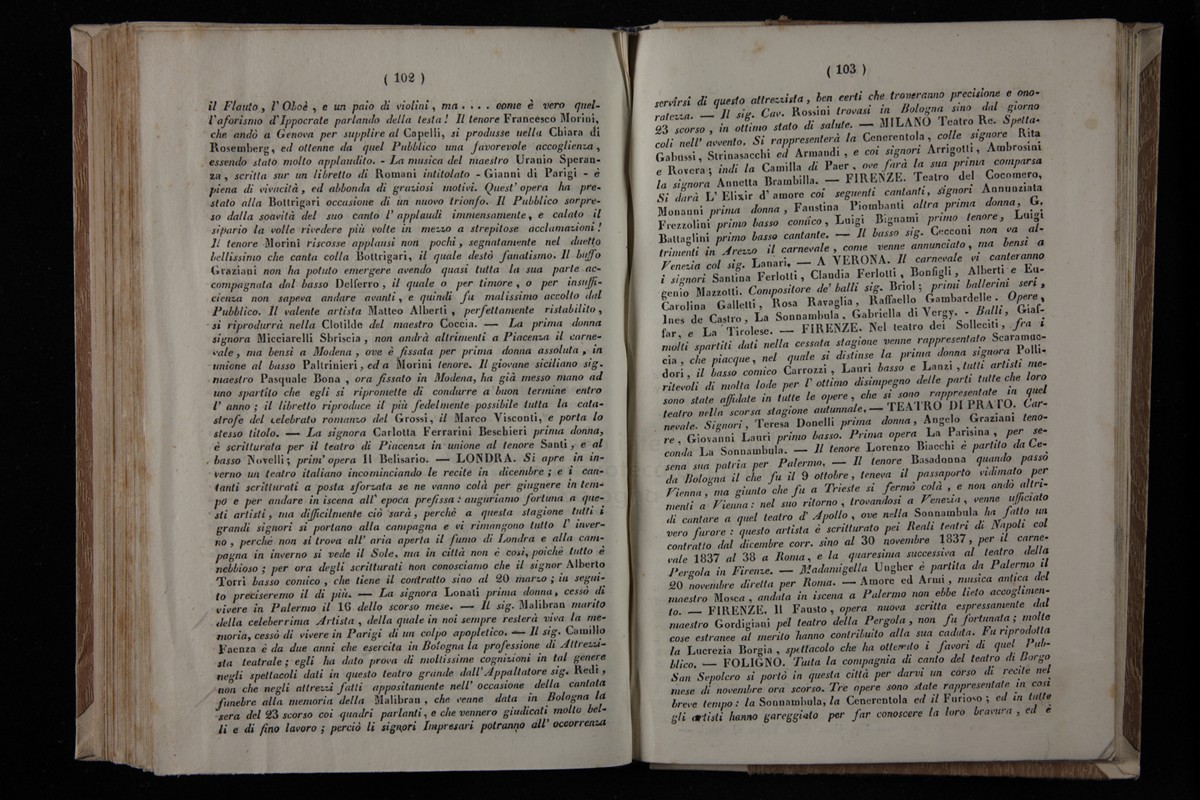 ( 102 )
il Flauto, l'Oboè, e un paio di violini, ma.... come è vero quel-
l'aforismo d'Ippocrate parlando della testa! Il tenore Francesco Morini,
che andò a Genova per supplire al Capelli, si produsse nella Chiara di
Rosemberg, ed ottenne da quel Pubblico una favorevole accoglienza,
essendo stato molto applaudito. - La musica del maestro Uranio Speran-
za, scritta sur un libretto di Romani intitolato - Gianni di Parigi - è
piena di vivacità, ed abbonda di graziosi motivi. Quest'opera ha pre-
stato alla Bottrigari occasione di un nuovo trionfo. Il Pubblico sorpre-
so dalla soavità del suo canto l'applaudì immensamente, e calato il
sipario la volle rivedere più volte in mezzo a strepitose acclamazioni!
Il tenore Morini riscosse applausi non pochi, segnatamente nel duetto
bellissimo che canta colla Bottrigari, il quale destò fanatismo. Il buffo
Graziani non ha potuto emergere avendo quasi tutta la sua parte ac-
compagnata dal basso Delferro, il quale o per timore, o per insuffi-
cienza non sapeva andare avanti, e quindi fu malissimo accolto dal
Pubblico. Il valente artista Matteo Alberti, perfettamente ristabilito,
si riprodurrà nella Clotilde del maestro Coccia. — La prima donna
signora Micciarelli Sbriscia, non andrà altrimenti a Piacenza il carne-
vale, ma bensì a Modena, ove è fissata per prima donna assoluta, in
unione al basso Paltrinieri, ed a Morini tenore. Il giovane siciliano sig.
maestro Pasquale Bona, ora fissato in Modena, ha già messo mano ad
uno spartito che egli si ripromette di condurre a buon termine entro
l'anno; il libretto riproduce il più fedelmente possibile tutta la cata-
strofe del celebrato romanzo del Grossi, il Marco Visconti, e porta lo
stesso titolo. — La signora Carlotta Ferrarini Beschieri prima donna,
è scritturata per il teatro di Piacenza in unione al tenore Santi, e al
basso Novelli; prim'opera Il Belisario. — LONDRA. Si apre in in-
verno un teatro italiano incominciando le recite in dicembre; e i can-
tanti scritturati a posta sforzata se ne vanno colà per giugnere in tem-
po e per andare in iscena all'epoca prefissa: auguriamo fortuna a que-
sti artisti, ma difficilmente ciò sarà, perchè a questa stagione tutti i
grandi signori si portano alla campagna e vi rimangono tutto l'inver-
no, perchè non si trova all'aria aperta il fumo di Londra e alla cam-
pagna in inverno si vede il Sole, ma in città non è così, poichè tutto è
nebbioso; per ora degli scritturati non conosciamo che il signor Alberto
Torri basso comico, che tiene il contratto sino al 20 marzo; in segui-
to preciseremo il di più. — La signora Lonati prima donna, cessò di
vivere in Palermo il 16 dello scorso mese. — Il sig. Malibran marito
della celeberrima Artista, della quale in noi sempre resterà viva la me-
moria, cessò di vivere in Parigi di un colpo apopletico. — Il sig. Camillo
Faenza è da due anni che esercita in Bologna la professione di Attrezzi-
sta teatrale; egli ha dato prova di moltissime cognizioni in tal genere
negli spettacoli dati in questo teatro grande dall'Appaltatore sig. Redi,
non che negli attrezzi fatti appositamente nell'occasione della cantata
funebre alla memoria della Malibran, che venne data in Bologna la
sera del 23 scorso coi quadri parlanti, e che vennero giudicati molto bel-
li e di fino lavoro; perciò li signori Impresari potranno all'occorrenza
( 103 )
servirsi di questo attrezzista, ben certi che troveranno precisione e ono-
ratezza. — Il sig. Cav. Rossini trovasi in Bologna sino dal giorno
23 scorso, in ottimo stato di salute. — MILANO Teatro Re. Spetta-
coli nell'avvento. Si rappresenterà la Cenerentola, colle signore Rita
Gabussi, Strinasacchi ed Armandi, e coi signori Arrigotti, Ambrosini
e Rovera; indi la Camilla di Paer, ove farà la sua prima comparsa
la signora Annetta Brambilla. — FIRENZE. Teatro del Cocomero,
Si darà L'Elixir d'amore coi seguenti cantanti, signori Annunziata
Monanni prima donna, Faustina Piombanti altra prima donna, G.
Frezzolini primo basso comico, Luigi Bignami primo tenore, Luigi
Battaglini primo basso cantante. — Il basso sig. Cecconi non va al-
trimenti in Arezzo il carnevale, come venne annunciato, ma bensì a
Venezia col sig. Lanari. — A VERONA. Il carnevale vi canteranno
i signori Santina Ferlotti, Claudia Ferlotti, Bonfigli, Alberti e Eu-
genio Mazzotti. Compositore de' balli sig. Briol; primi ballerini seri,
Carolina Galletti, Rosa Ravaglia, Raffaello Gambardelle. Opere,
Ines de Castro, La Sonnambula, Gabriella di Vergy. - Balli, Giaf-
far, e La Tirolese. — FIRENZE. Nel teatro dei Solleciti, fra i
molti spartiti dati nella cessata stagione venne rappresentato Scaramuc-
cia, che piacque, nel quale si distinse la prima donna signora Polli-
dori, il basso comico Carrozzi, Lauri basso e Lanzi, tutti artisti me-
ritevoli di molta lode per l'ottimo disimpegno delle parti tutte che loro
sono state affidate in tutte le opere, che si sono rappresentate in quel
teatro nella scorsa stagione autunnale. — TEATRO DI PRATO. Car-
nevale. Signori, Teresa Donelli prima donna, Angelo Graziani teno-
re, Giovanni Lauri primo basso. Prima opera La Parisina, per se-
conda La Sonnambula. — Il tenore Lorenzo Biacchi è partito da Ce-
sena sua patria per Palermo. — Il tenore Basadonna quando passò
da Bologna il che fu il 9 ottobre, teneva il passaporto vidimato per
Vienna, ma giunto che fu a Trieste si fermò colà, e non andò altri-
menti a Vienna: nel suo ritorno, trovandosi a Venezia, venne ufficiato
di cantare a quel teatro d'Apollo, ove nella Sonnambula ha fatto un
vero furore: questo artista è scritturato pei Reali teatri di Napoli col
contratto dal dicembre corr. sino al 30 novembre 1837, per il carne-
vale 1837 al 38 a Roma, e la quaresima successiva al teatro della
Pergola in Firenze. — Madamigella Ungher è partita da Palermo il
20 novembre diretta per Roma. — Amore ed Armi, musica antica del
maestro Mosca, andata in iscena a Palermo non ebbe lieto accoglimen-
to. — FIRENZE. Il Fausto, opera nuova scritta espressamente dal
maestro Gordigiani pel teatro della Pergola, non fu fortunata; molte
cose estranee al merito hanno contribuito alla sua caduta. Fu riprodotta
la Lucrezia Borgia, spettacolo che ha ottenuto i favori di quel Pub-
blico. — FOLIGNO. Tutta la compagnia di canto del teatro di Borgo
San Sepolcro si portò in questa città per darvi un corso di recite nel
mese di novembre ora scorso. Tre opere sono state rappresentate in così
breve tempo: la Sonnambula, la Cenerentola ed il Furioso; ed in tutte
gli artisti hanno gareggiato per far conoscere la loro bravura, ed è